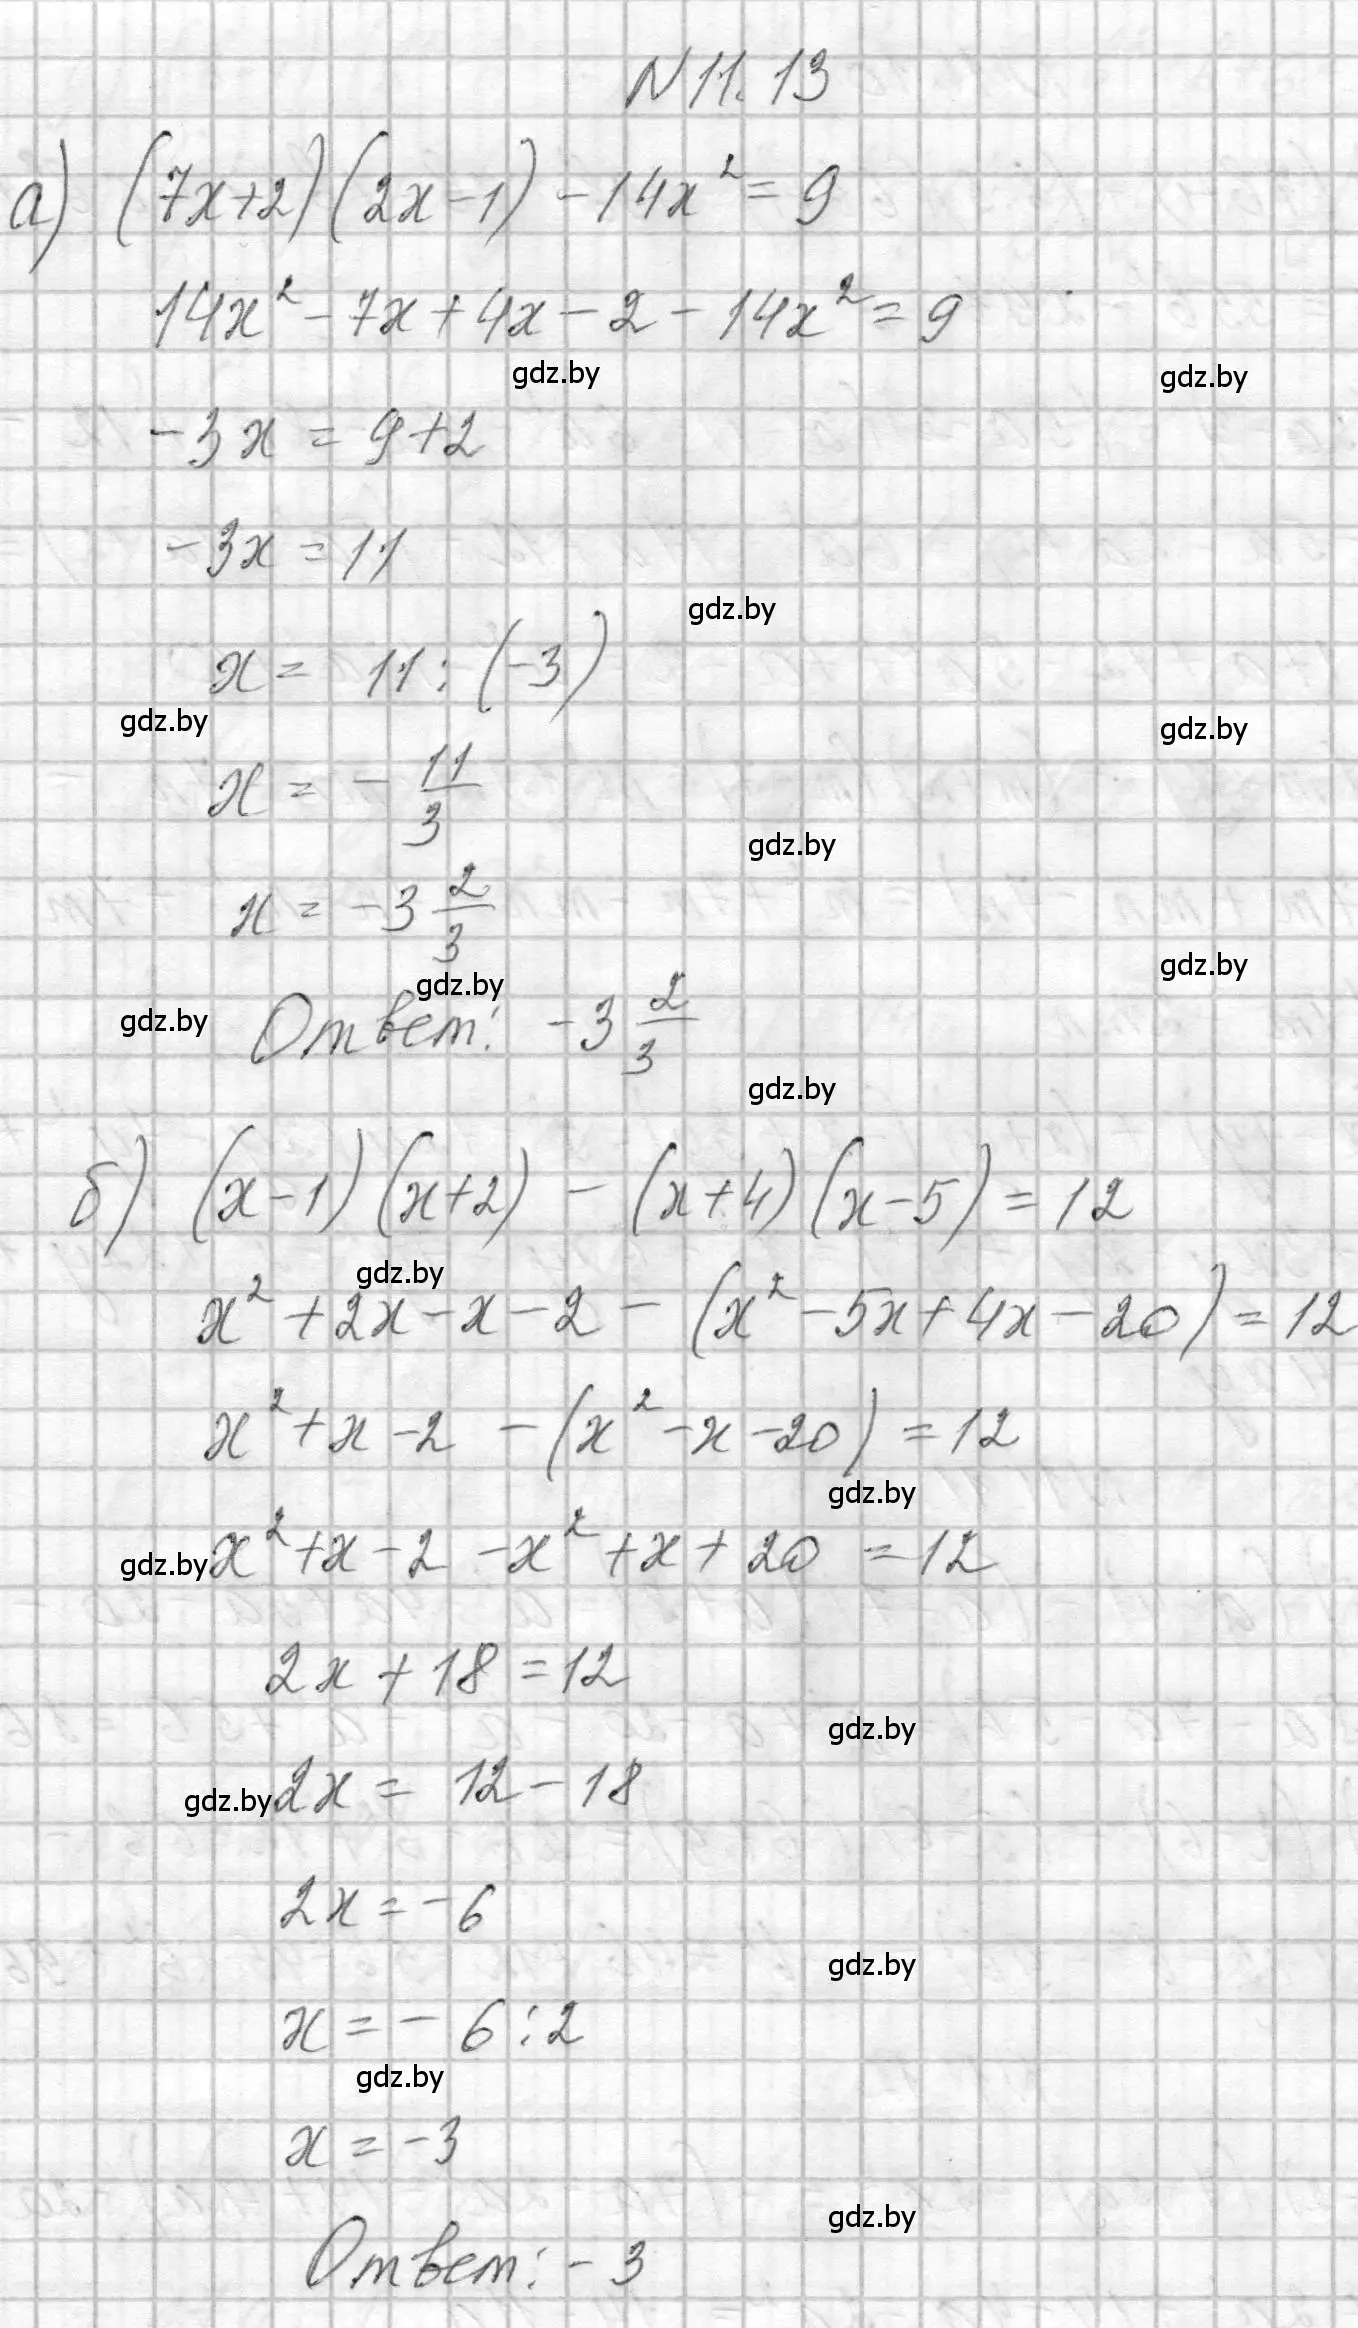 N 11.13
а) (7x+2)(2x-1) - 14x² = 9
14x² - 7x + 4x - 2 - 14x² = 9
gdz.by gdz.by
-3x = 9+2
-3x = 11
gdz.by
x = 11 : (-3)
gdz.by gdz.by
x = - 11/3
gdz.by
x = -3 2/3
gdz.by
gdz.by gdz.by
Ответ: -3 2/3
gdz.by
б) (x-1)(x+2) - (x+4)(x-5) = 12
gdz.by
x² + 2x - x - 2 - (x² - 5x + 4x - 20) = 12
x² + x - 2 - (x² - x - 20) = 12
gdz.by
gdz.by x² + x - 2 - x² + x + 20 = 12
2x + 18 = 12
gdz.by
gdz.by 2x = 12 - 18
2x = -6
gdz.by
x = - 6 : 2
gdz.by
x = -3
gdz.by
Ответ: - 3